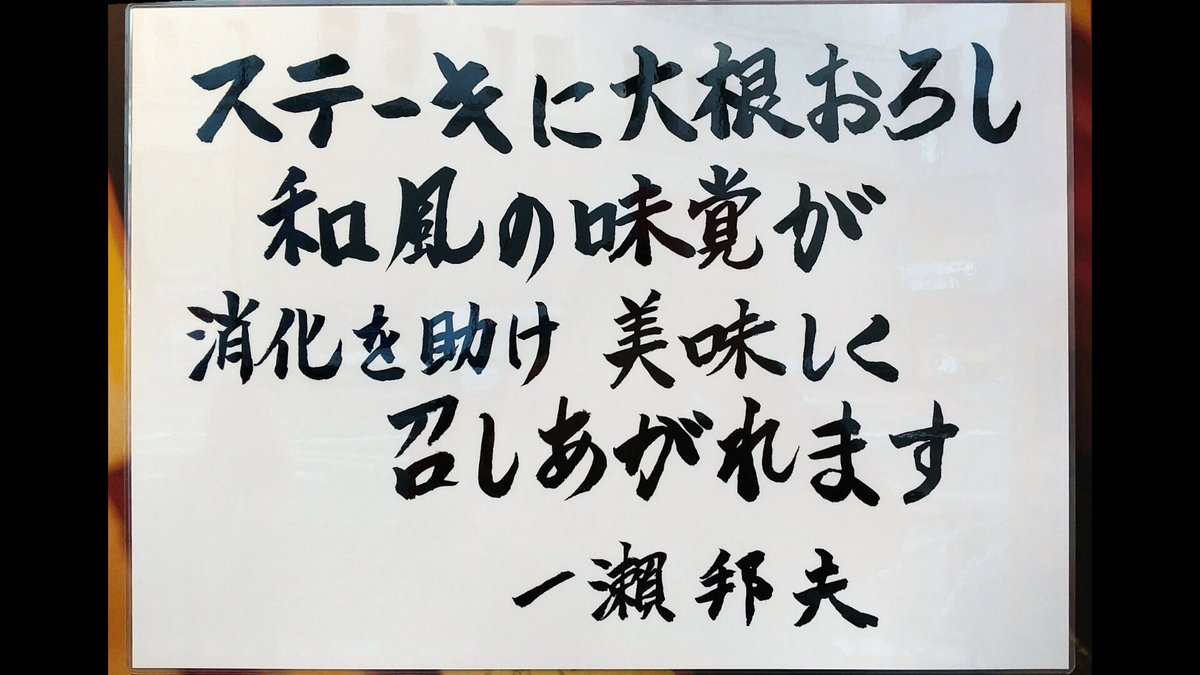 ステーキに大根おろし
和風の味覚が
消化を助け 美味しく
召しあがれます
一瀬邦夫